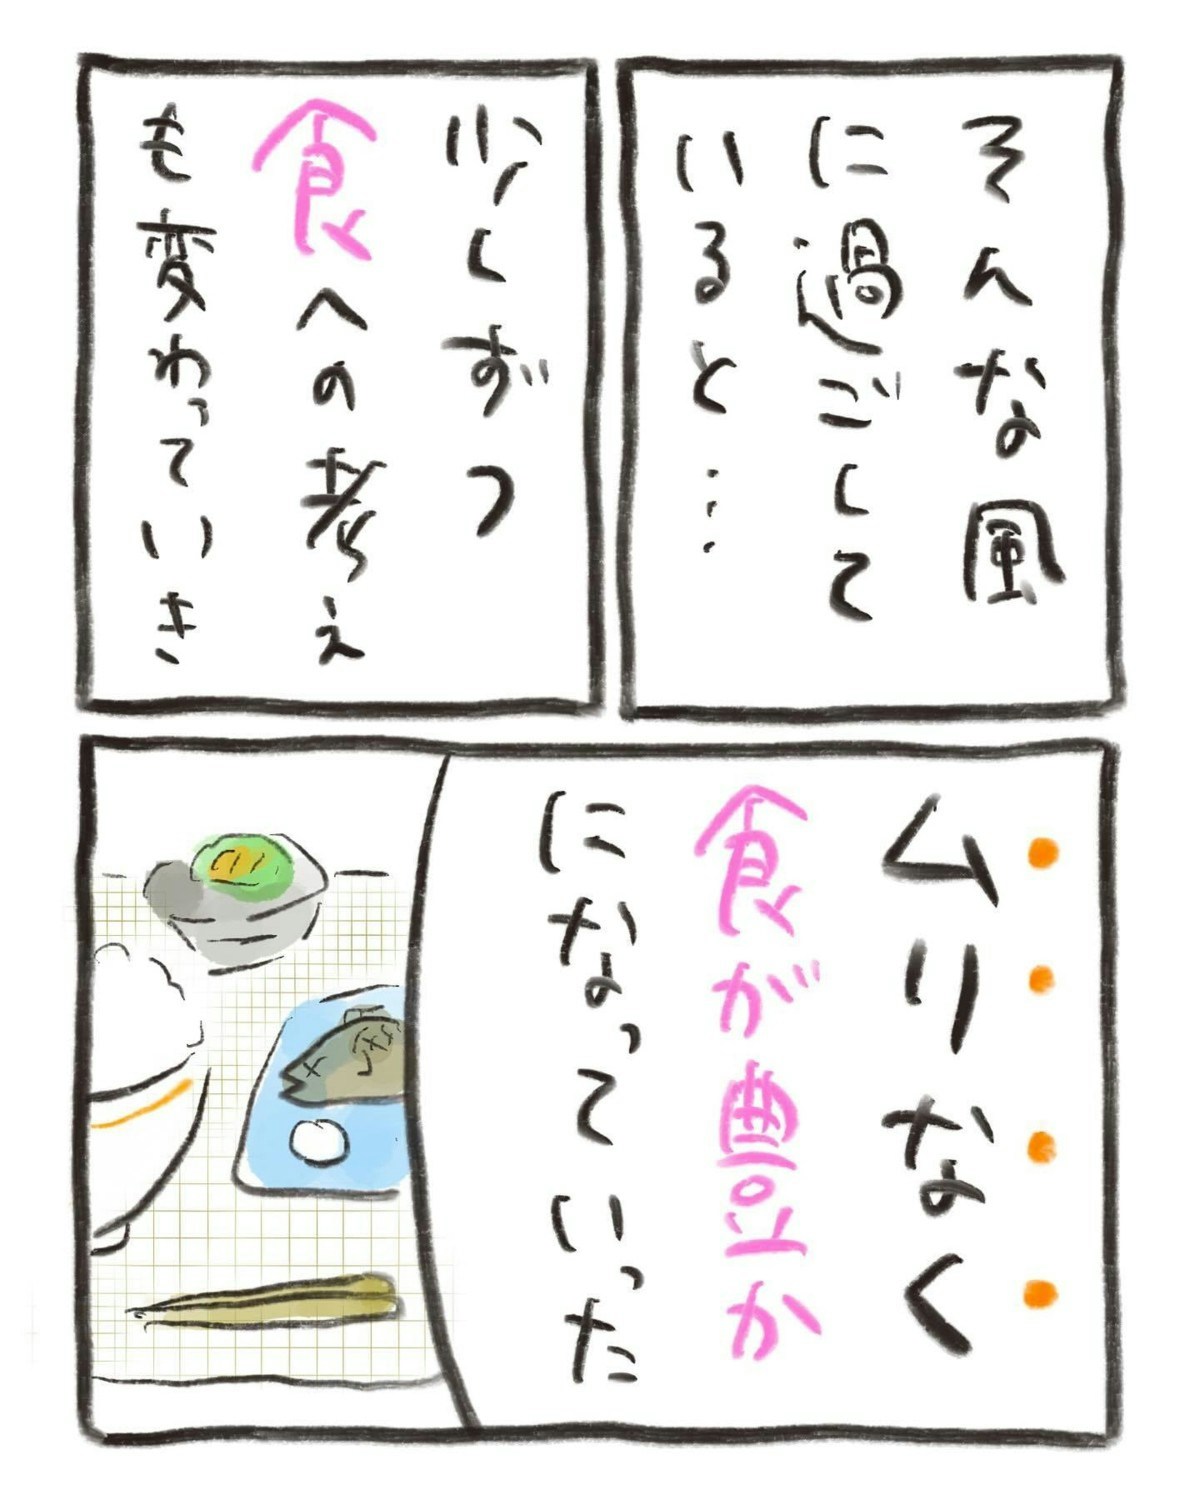 そんな風
に過ごして
いると…
少しずつ
食への考え
も変わっていき
ムリなく
食が豊か
になっていった